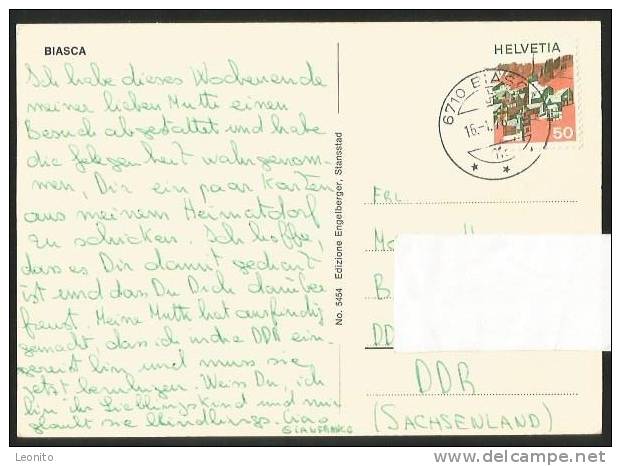 BIASCA
Ich habe dieses Wochenende
meiner lieben Mutti einen
Besuch abgestattet und habe
die gelegenheit wahrgenom-
men, Dir ein paar Karten
aus meinem Heimatdorf
zu schicken. Ich hoffe,
dass es Dir damit gedient
ist und dass Du Dich darüber
freust. Meine Mutti hat ausfindig
gemacht, dass ich in die DDR ein-
gereist bin und muss sie
jetzt beruhigen. Weiss Du, ich
bin ihr Lieblingskind und mir
glaubt sie blindlings. Ciao
GIANFRANCO
No. 5454 Edizione Engelberger, Stansstad
HELVETIA
50
6710 BIASCA
16.-1.
FRL.
M
B
DD
DDR
(SACHSENLAND)
Leonito
www.delcampe.net